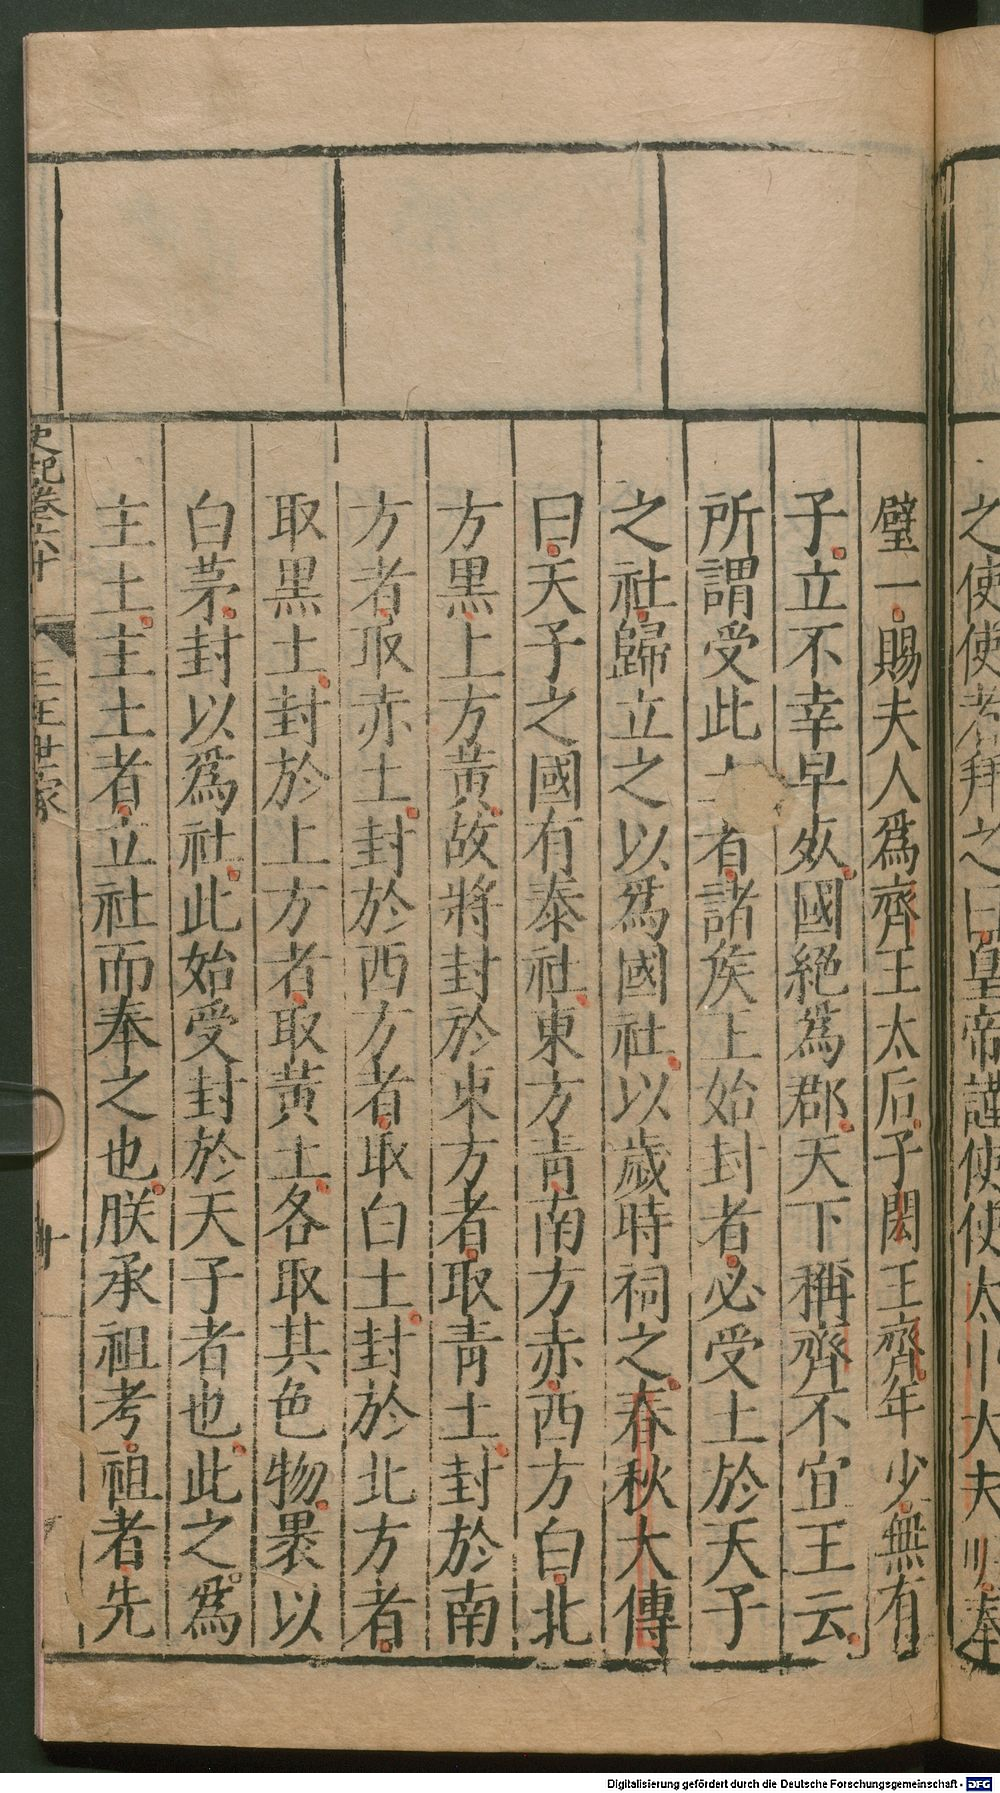 之使使者拜之曰皇帝謹使使太中大夫明奉
璧一賜夫人爲齊王太后子閎王齊年少無有
子立不幸早死國絕爲郡天下稱齊不宜王云
所謂受此土者諸矦王始封者必受土於天子
之社歸立之以爲國社以歲時祠之春秋大傳
曰天子之國有泰社東方青南方赤西方白北
方黑上方黃故將封於東方者取青土封於南
方者取赤土封於西方者取白土封於北方者
取黑土封於上方者取黃土各取其色物褁以
白茅封以爲社此始受封於天子者也此之爲
主土主土者立社而奉之也朕承祖考祖者先
史記卷六十
三王世家
十
Digitalisierung gefördert durch die Deutsche Forschungsgemeinschaft - DFG